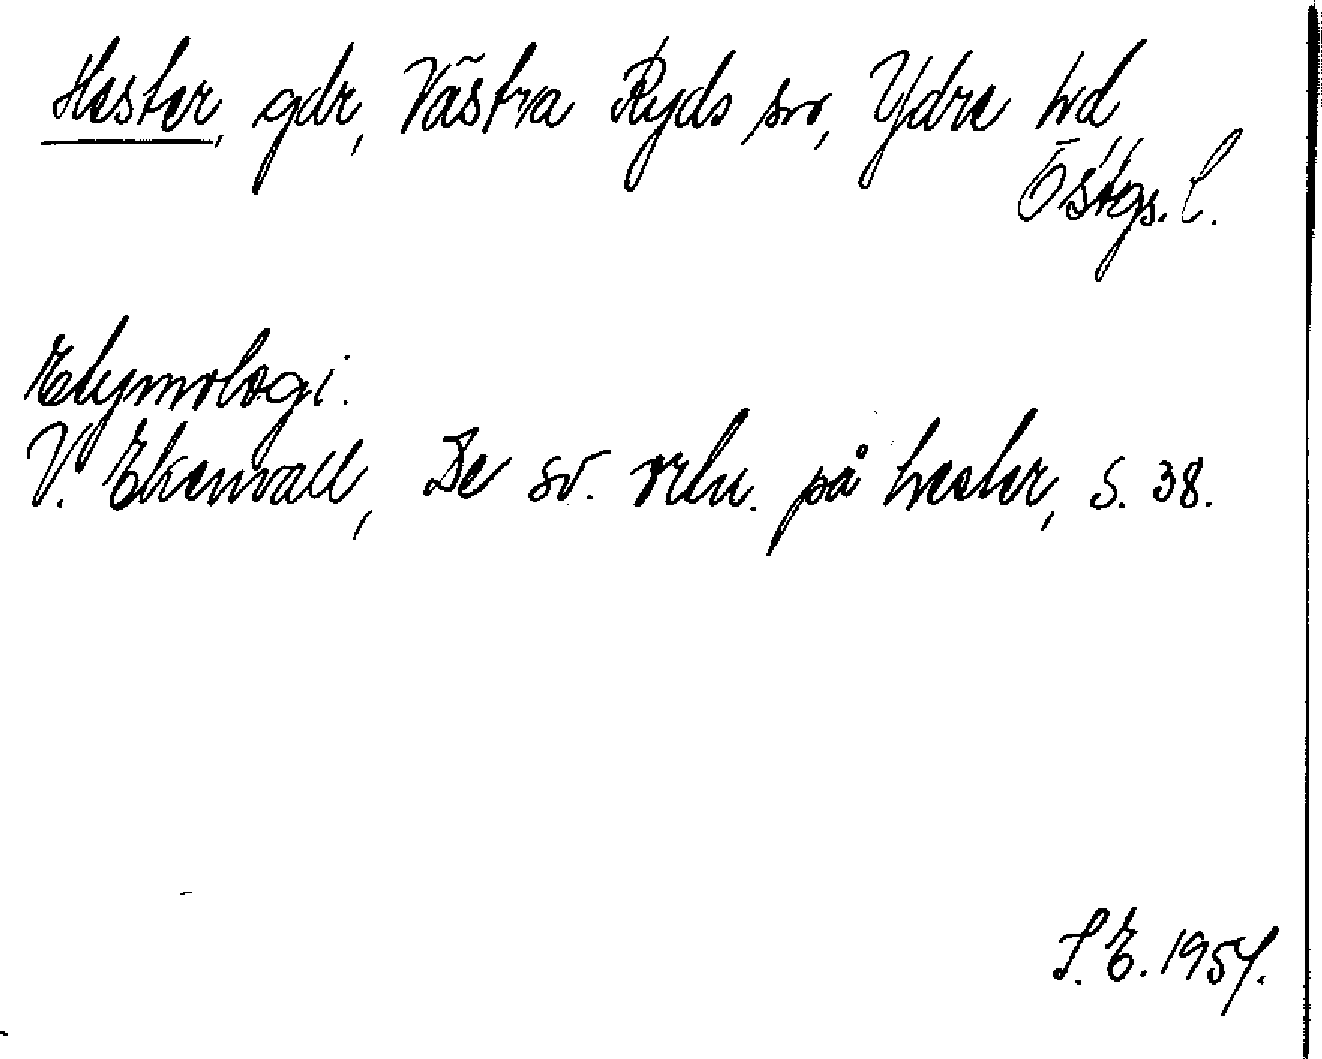 Hester, gdr, Västra Ryds sn, Ydre hd
Östgs. l.
Etymologi.
V. Ekenvall, De sv. ortn. på hester, s. 38.
S. E. 1957.